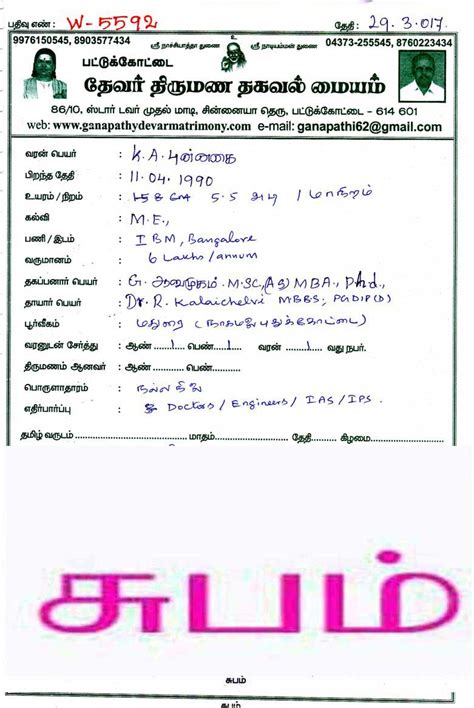 பதிவு எண் : W-5592 தேதி : 29.3.017
9976150545, 8903577434 ஸ்ரீ நாச்சியாத்தா துணை உ ஸ்ரீ நாடியம்மன் துணை 04373-255585, 8760223434
பட்டுக்கோட்டை
தேவர் திருமண தகவல் மையம்
86/10, ஸ்டார் டவர் முதல் மாடி, சின்னையா தெரு, பட்டுக்கோட்டை - 614 601
web: www.ganapathydevarmatrimony.com e-mail: ganapathi62@gmail.com
வரன் பெயர் : K.A. புன்னகை
பிறந்த தேதி : 11.04.1990
உயரம் / நிறம் : 5.5 அடி / மாநிறம்
கல்வி : M.E.,
பணி / இடம் : IBM, Bangalore
வருமானம் : 6 Lakhs/annum
தகப்பனார் பெயர் : G. ஆறுமுகம். M.SC,(AG) MBA., Ph.d.,
தாயார் பெயர் : Dr. R. Kalaichelvi MBBS, PGDIP(D)
பூர்வீகம் : மதுரை (நாகமலைபுதுக்கோட்டை)
வரனுடன் சேர்த்து : ஆண் 1 பெண் 1 வரன் 1 வது நபர்.
திருமணம் ஆனவர் : ஆண் ............ பெண் ............
பொருளாதாரம் : நல்ல நிலை
எதிர்பார்ப்பு : Doctors / Engineers / IAS / IPS.
தமிழ் வருடம் ............ மாதம் ............ தேதி ............ கிழமை ............
சுபம்
சுபம்
சுபம்